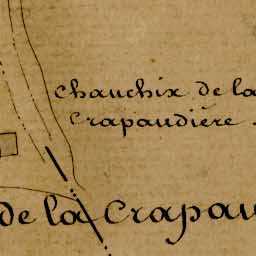 Chauchix de la
Crapaudière.
de la Crapau